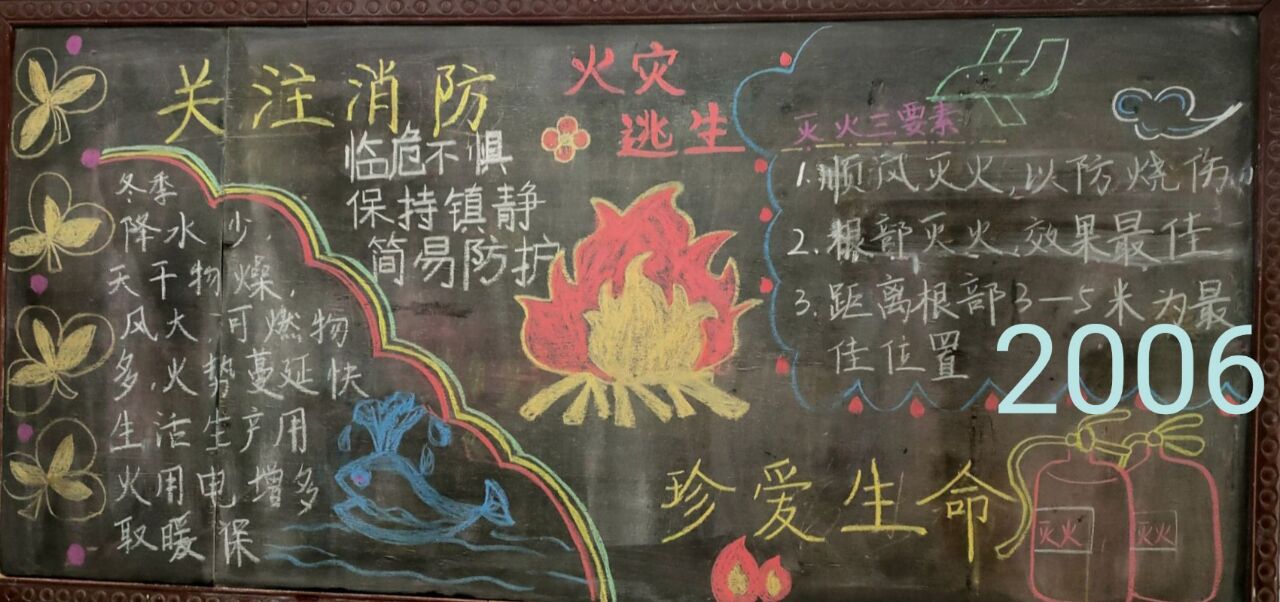 关注消防
火灾
逃生
临危不惧
保持镇静
简易防护
冬季
降水少,
天干物燥,
风大,可燃物
多,火势蔓延快
生活生产用
火用电增多
取暖保
灭火三要素
1.顺风灭火,以防烧伤
2.根部灭火,效果最佳
3.距离根部3—5米为最
佳位置
2006
珍爱生命
灭火
灭火